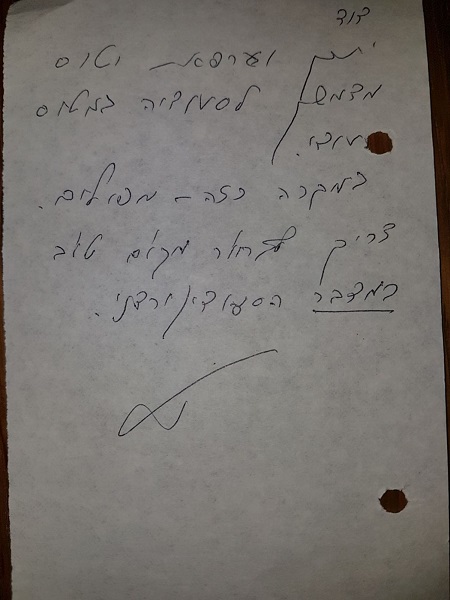 דוד
יתכן וערפאת יטוס
מדמשק לסעודיה במטוס
סעודי.
במקרה כזה – מפילים.
צריך לבחור מקום טוב
במדבר הסעודי/ירדני.